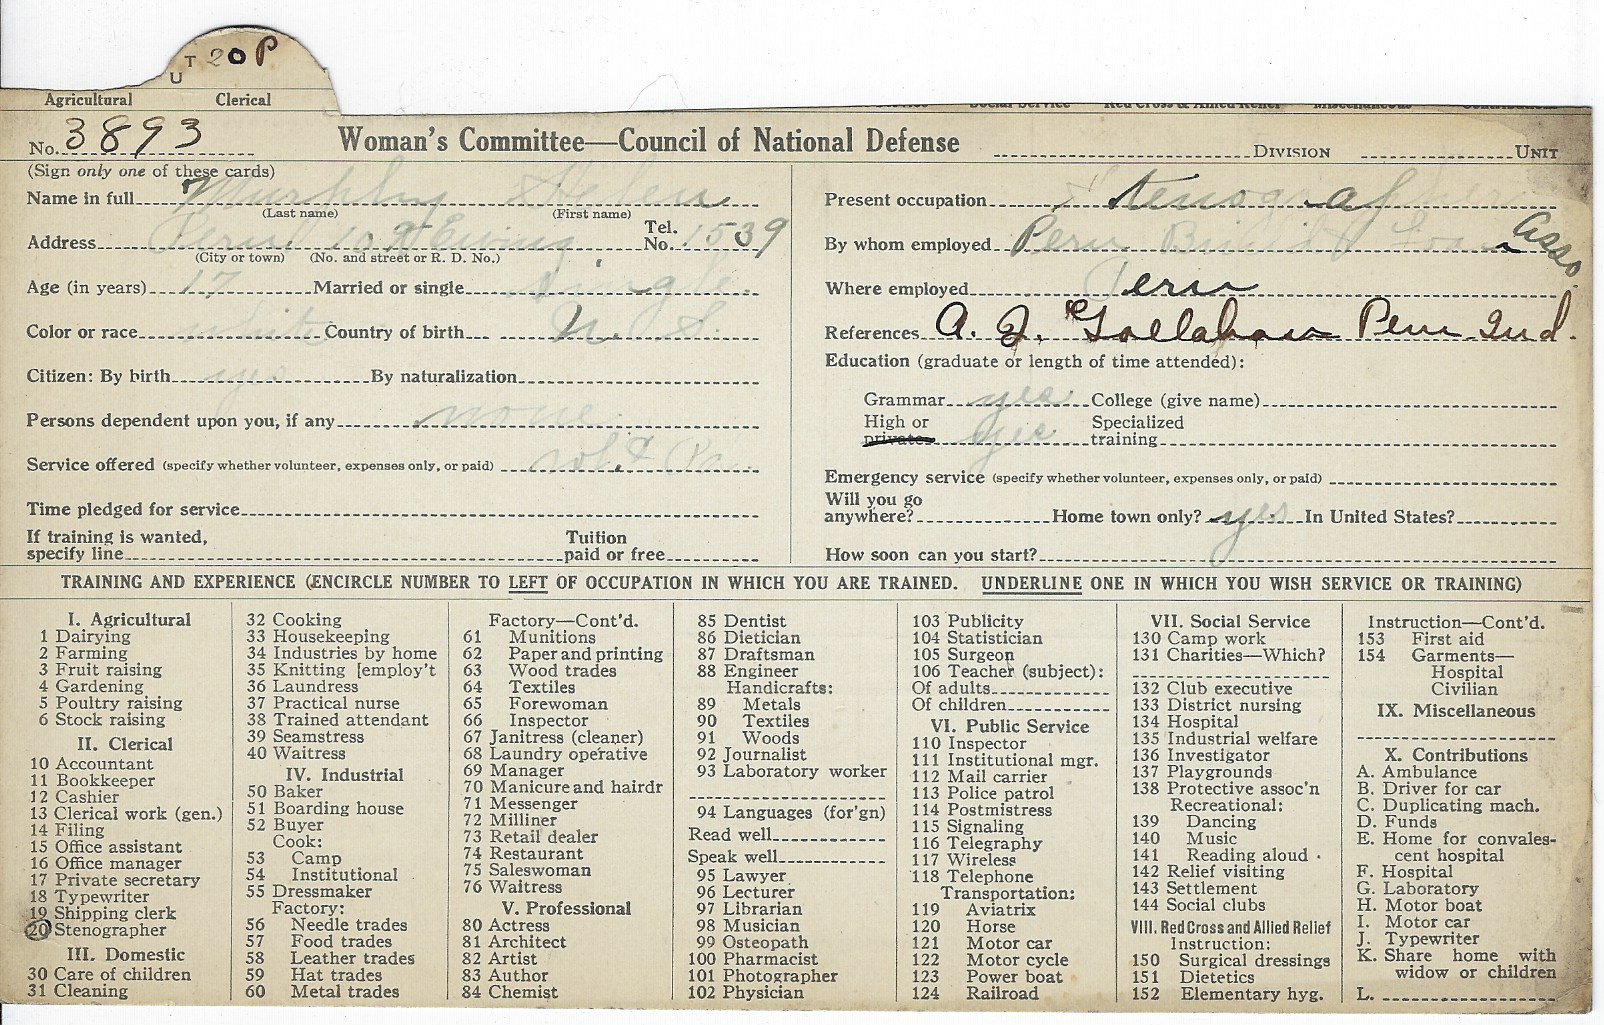 T 20 P
U
Agricultural Clerical Social Service Red Cross & Allied Relief Miscellaneous
No. 3893 Woman's Committee—Council of National Defense DIVISION UNIT
(Sign only one of these cards)
Name in full Murphy Helen
(Last name) (First name)
Address Peru 109 Ewing Tel. No. 1539
(City or town) (No. and street or R. D. No.)
Age (in years) 17 Married or single single
Color or race white Country of birth U. S.
Citizen: By birth yes By naturalization
Persons dependent upon you, if any none
Service offered (specify whether volunteer, expenses only, or paid) vol. &
Time pledged for service
If training is wanted,
specify line Tuition paid or free
Present occupation Stenographer
By whom employed Peru Build & Loan Asso.
Where employed Peru
References A. J. Peru Ind.
Education (graduate or length of time attended):
Grammar yes College (give name)
High or private yes Specialized training
Emergency service (specify whether volunteer, expenses only, or paid)
Will you go anywhere? Home town only? yes In United States?
How soon can you start?
TRAINING AND EXPERIENCE (ENCIRCLE NUMBER TO LEFT OF OCCUPATION IN WHICH YOU ARE TRAINED. UNDERLINE ONE IN WHICH YOU WISH SERVICE OR TRAINING)
I. Agricultural
1 Dairying
2 Farming
3 Fruit raising
4 Gardening
5 Poultry raising
6 Stock raising
II. Clerical
10 Accountant
11 Bookkeeper
12 Cashier
13 Clerical work (gen.)
14 Filing
15 Office assistant
16 Office manager
17 Private secretary
18 Typewriter
19 Shipping clerk
20 Stenographer
III. Domestic
30 Care of children
31 Cleaning
32 Cooking
33 Housekeeping
34 Industries by home
35 Knitting [employ't
36 Laundress
37 Practical nurse
38 Trained attendant
39 Seamstress
40 Waitress
IV. Industrial
50 Baker
51 Boarding house
52 Buyer
Cook:
53 Camp
54 Institutional
55 Dressmaker
Factory:
56 Needle trades
57 Food trades
58 Leather trades
59 Hat trades
60 Metal trades
Factory—Cont'd.
61 Munitions
62 Paper and printing
63 Wood trades
64 Textiles
65 Forewoman
66 Inspector
67 Janitress (cleaner)
68 Laundry operative
69 Manager
70 Manicure and hairdr
71 Messenger
72 Milliner
73 Retail dealer
74 Restaurant
75 Saleswoman
76 Waitress
V. Professional
80 Actress
81 Architect
82 Artist
83 Author
84 Chemist
85 Dentist
86 Dietician
87 Draftsman
88 Engineer
Handicrafts:
89 Metals
90 Textiles
91 Woods
92 Journalist
93 Laboratory worker
94 Languages (for'gn)
Read well
Speak well
95 Lawyer
96 Lecturer
97 Librarian
98 Musician
99 Osteopath
100 Pharmacist
101 Photographer
102 Physician
103 Publicity
104 Statistician
105 Surgeon
106 Teacher (subject):
Of adults
Of children
VI. Public Service
110 Inspector
111 Institutional mgr.
112 Mail carrier
113 Police patrol
114 Postmistress
115 Signaling
116 Telegraphy
117 Wireless
118 Telephone
Transportation:
119 Aviatrix
120 Horse
121 Motor car
122 Motor cycle
123 Power boat
124 Railroad
VII. Social Service
130 Camp work
131 Charities—Which?
132 Club executive
133 District nursing
134 Hospital
135 Industrial welfare
136 Investigator
137 Playgrounds
138 Protective assoc'n
Recreational:
139 Dancing
140 Music
141 Reading aloud
142 Relief visiting
143 Settlement
144 Social clubs
VIII. Red Cross and Allied Relief
Instruction:
150 Surgical dressings
151 Dietetics
152 Elementary hyg.
Instruction—Cont'd.
153 First aid
154 Garments—
Hospital
Civilian
IX. Miscellaneous
X. Contributions
A. Ambulance
B. Driver for car
C. Duplicating mach.
D. Funds
E. Home for convales-
cent hospital
F. Hospital
G. Laboratory
H. Motor boat
I. Motor car
J. Typewriter
K. Share home with
widow or children
L.